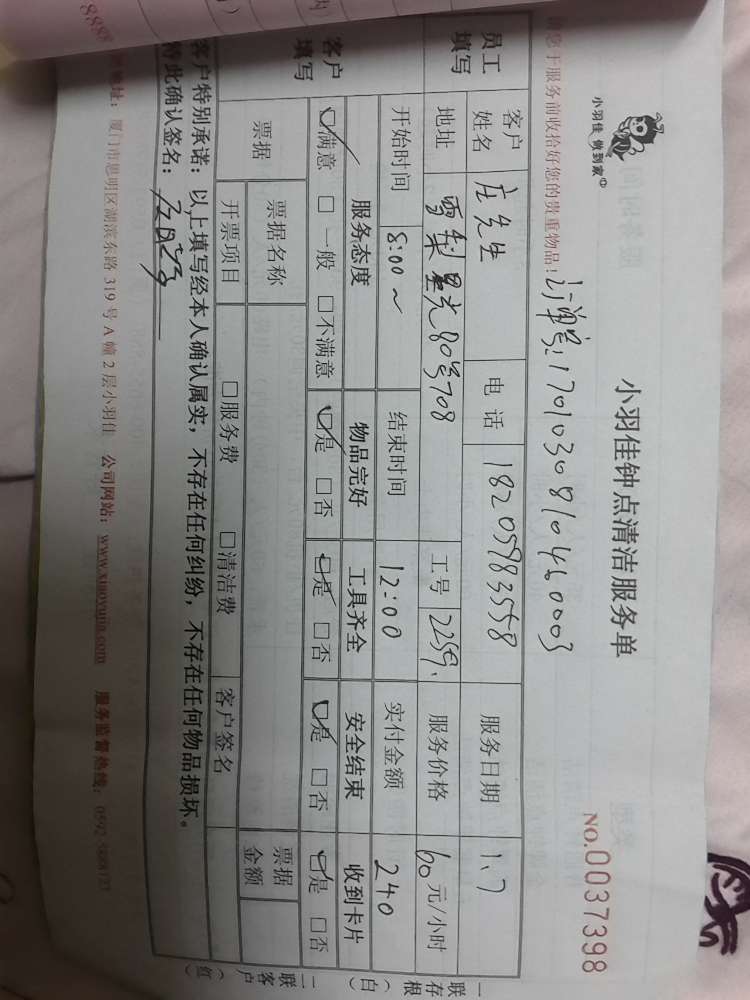 小羽佳 做到家
小羽佳钟点清洁服务单
NO.0037398
请您于服务前收拾好您的贵重物品!
订单号:1701030810460003
员工填写
客户姓名 庄先生 电话 18205983558 服务日期 1.7
地址 雪梨星光80号708 工号 2259. 服务价格 60元/小时
开始时间 8:00~ 结束时间 12:00 实付金额 240
客户填写
服务态度 物品完好 工具齐全 安全结束 收到卡片
☑满意 □一般 □不满意 ☑是 □否 ☑是 □否 ☑是 □否 ☑是 □否
票据 票据名称 票据金额
开票项目 □服务费 □清洁费 客户签名
客户特别承诺:以上填写经本人确认属实,不存在任何纠纷,不存在任何物品损坏。
特此确认签名:
地址:厦门市思明区湖滨东路319号A幢2层小羽佳 公司网站:www.xiaoyujia.com 服务监督热线:0592
一存根(白)
一客户(红)
联
联